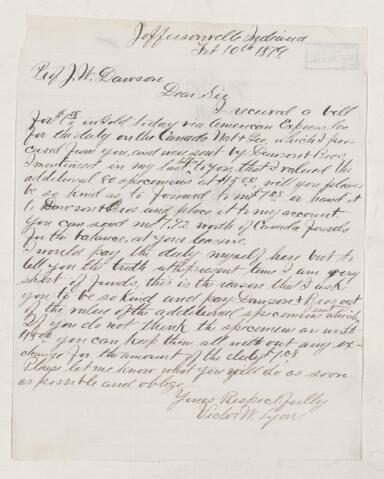 Jeffersonville Indiana
Feb 10th 1879
Prof J. W. Dawson
Dear Sir
I received a bill
for $ in Gold today via American Express Co
for the duty on the Canada Nat & Geo, which I pro-
cured from you, and was sent by Dawson Bros.
I mentioned in my last letter to you, that I valued the
additional 80 specimens at $9.00 will you please
be so kind as to forward to me 7.08 or hand it
to Dawson Bros and place it to my account
You can send me 1.92 worth of Canada fossils
for the balance, at your leasure.
I would pay the duty myself here but to
tell you the truth at the present time I am very
short of funds, this is the reason that I ask
you to be so kind and pay Dawson & Bros out
of the value of the additional specimens which I sent
If you do not think the specimens are worth
$9.00 you can keep them all without any ex-
change for the amount of the duty $7.08
Pleas let me know what you will do as soon
as possible and oblige
Yours Respectfully
Victor W. Lyon